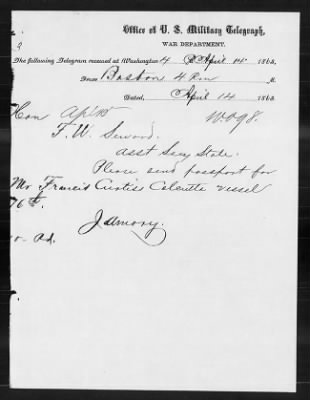 Office of U. S. Military Telegraph,
WAR DEPARTMENT.
The following Telegram received at Washington, 4 P April 14 1865.
From Boston 4 P M.
Dated, April 14 1865.
Hon
W 098.
F. W. Seward.
Asst Secy State.
Please send passport for
Mr Francis Curtiss vessel
J Amory.
Pd.